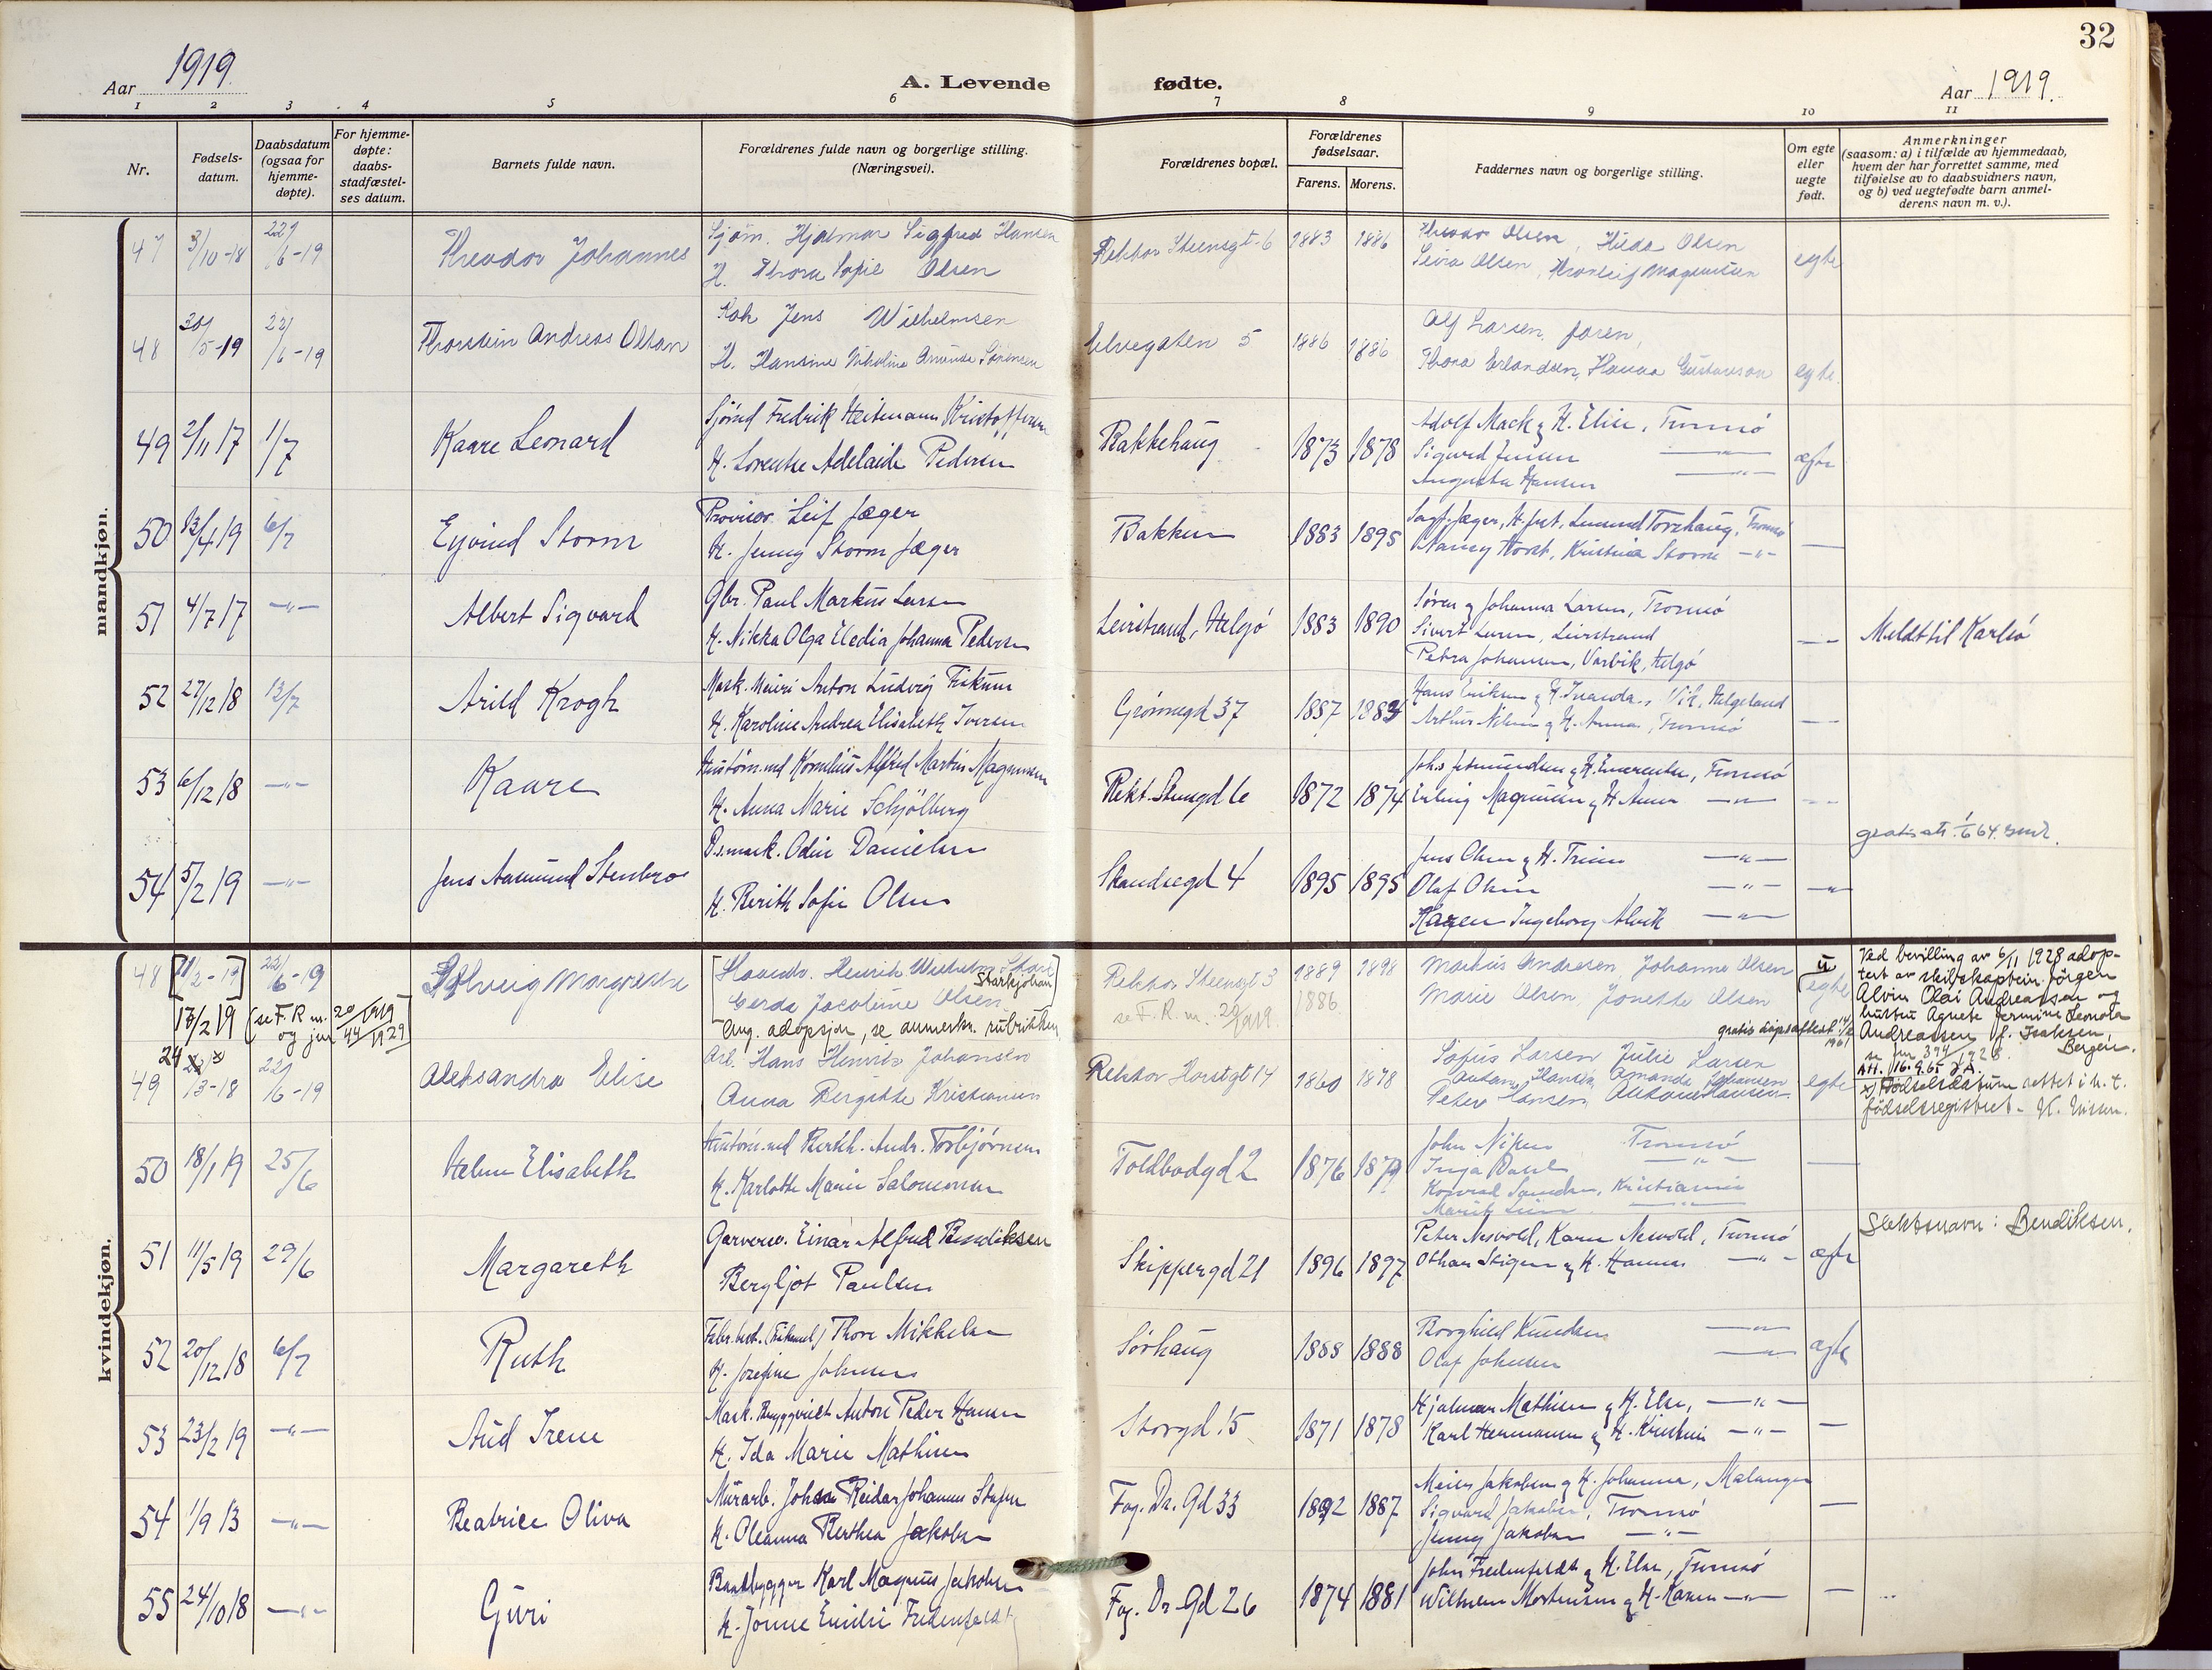 32
Aar 1919.
A. Levende
fødte.
Aar 1919.
1 2 3 4 5 6 7 8 9 10 11
Nr.
Fødsels-
datum.
Daabsdatum
(ogsaa for
hjemme-
døpte).
For hjemme-
døpte:
daabs-
stadfæstel-
ses datum.
Barnets fulde navn.
Forældrenes fulde navn og borgerlige stilling.
(Næringsvei).
Forældrenes bopæl.
Forældrenes
fødselsaar.
Farens. Morens.
Faddernes navn og borgerlige stilling.
Om egte
eller
uegte
født.
Anmerkninger
(saasom: a) i tilfælde av hjemmedaab,
hvem der har forrettet samme, med
tilføielse av to daabsvidners navn,
og b) ved uegtefødte barn anmel-
derens navn m. v.).
mandkjøn.
47 3/10-18 22/6-19 Theodor Johannes
Sjøm. Hjalmar Sigfred Hansen
H. Thora Sofie Olsen
Rektor Steensgt. 6 1883 1886
Theodor Olsen, Hilda Olsen
Olsen, Thorleif Magnussen
egte
48 30/5-19 22/6-19 Thorstein Andreas Olsen
Kok Jens Wilhelmsen
H. Hansine Nikoline Amanda Sørensen
Elvegaten 5 1886 1886
Alf Larsen, faren,
Thora Erlandsen, Hanna Gustavson
egte.
49 2/11 17 1/7 Kaare Leonard
Sjømd Fredrik Heitmann Kristoffersen
H. Lorentse Adelaide Pedersen
Bakkehaug 1873 1878
Adolf Mack & H. Elise, Tromsø
Sigurd Jensen —"—
Augusta Hansen —"—
ægte
50 13/4 19 6/7 Eyvind Storm
Provisor Leif Jæger
H. Jenny Storm Jæger
Bakken 1883 1895
Jæger, H. frst, Torehaug, Tromsø
Nancy Horst, Kristina Storm —"—
—
51 4/7 17 —"— Albert Sigvard
Gbr. Paul Markus Larsen
H. Nikka Olga Eledia Johanna Pedersen
Leirstrand, Helgø 1883 1890
Søren & Johanna Larsen, Tromsø
Sivert Larsen, Leirstrand
Petra Johansen, Helgø
—
Meldt til Karlsø
52 27/12 18 13/7 Arild Krogh
Mask. Anton Ludvig
H. Karoline Andrea Elisabeth Iversen
Grønnegd 37 1887 1884
Hans Eriksen & H. Helgeland
Arthur Nilsen & H. Anna, Tromsø
—
53 6/12 18 —"— Kaare
Kornelius Alfred Martin Magnussen
H. Anna Marie Schjølberg
Rekt. Steensgd 6 1872 1874
Tromsø
Erling Magnussen & H. Anna —"—
54 5/2 19 —"— Jens Aasmund Stenbro
Odin Danielsen
H. Berith Sofie Olsen
Skandsegd 4 1895 1895
Jens Olsen & H. Trine —"—
Olaf Olsen —"—
Karen Ingeborg Alvik —"—
—"—
gratis att. 1/6 64.
kvindekjøn.
48 [11/2-19] 22/6-19 Solveig Margrethe
17/2 19 (se F.R. m. 20/1919
og jnr 44/1929)
[Haandv. Henrik Wilhelm
Starkjohan
Gerda Jacobine Olsen]
Ang. adopsjon, se anmerkn. rubrikken
Rektor Steensgt 3
se F. R. m. 20/1919.
1889 1898
1886
Markus Andresen, Johanna Olsen
Marie Olsen, Jonette Olsen
u
egte
Ved bevilling av 6/11 1928 adop-
tert av skibskaptein Jørgen
Alvin Olai Andreassen og
hustru Agnete Jermine Leonora
Andreassen f. Isaksen,
Bergen.
se jnr 394/1928.
Att. 16.9.65
gratis dåpsattest 14/2 1961
49 24/13-18 22/6-19 Aleksandra Elise
Arb. Hans Henrik Johansen
Anna Bergitte Kristiansen
Rektor Horstgt 14 1860 1878
Sofus Larsen Julie Larsen
Hansen, Amanda Johansen
Peter Hansen, Hansen
egte
x) Fødselsdatum rettet i h. t.
fødselsregistret.
50 18/1 19 25/6 Helene Elisabeth
Andr. Torbjørnsen
H. Karlotte Marie Salomonsen
Toldbodgd 2 1876 1879
John Tromsø
Inga —"—
Kristiania
—
51 11/5 19 29/6 Margareth
Garversv. Einar Alfred Bendiksen
Bergljot Paulsen
Skippergd 21 1896 1897
Peter Nesvold, Karen Nesvold, Tromsø
Othar Stigen & H. Hanna —"—
ægte
Slektsnavn: Bendiksen.
52 20/12 18 6/7 Ruth
Thore Mikkelsen
H. Josefine Johnsen
Sørhaug 1888 1888
Borghild Knudsen —"—
Olaf Johnsen —"—
ægte
53 23/2 19 —"— Aud Irene
Mask. Anton Peder Hansen
H. Ida Marie Mathisen
Storgd. 15 1871 1878
Hjalmar Mathisen & H. Else, —"—
Karl Hermansen & H. Kristine —"—
—
54 1/9 13 —"— Beatrice Oliva
Murarb. Johan Reidar Johannes
H. Oleanna Berthea Jakobsen
Fog. Dr. Gd 33 1892 1887
Meier Jakobsen & H. Johanna, Malangen
Sigvard Jakobsen, Tromsø
Jenny Jakobsen —"—
—
55 24/10 18 —"— Guri
Baadbygger Karl Magnus Jakobsen
H. Jonne Emilie Fredenfeldt
Fog. Dr Gd 26 1874 1881
John Fredenfeldt & H. Else, Tromsø
Wilhelm Mortensen & H. Karen —"—
—